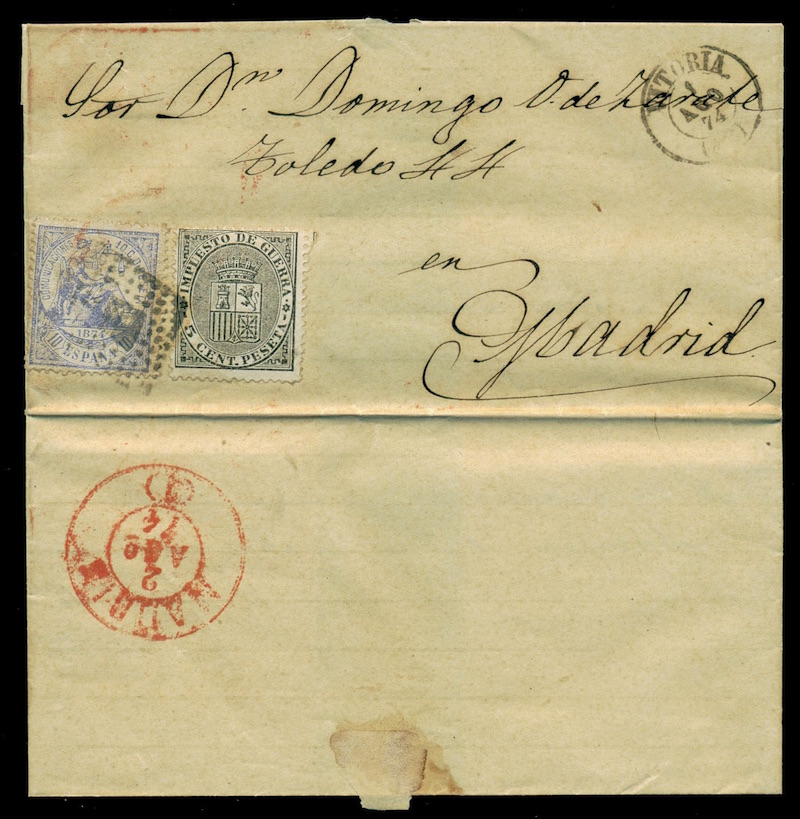 Sor Dn Domingo O. de Zarate
Toledo 44
en
Madrid
VITORIA.
1
AGO
74
COMUNICACIONES
1874
10 ESPAÑA 10
IMPUESTO DE GUERRA
5 CENT. PESETA
MADRID
2
AGO
74
(1)